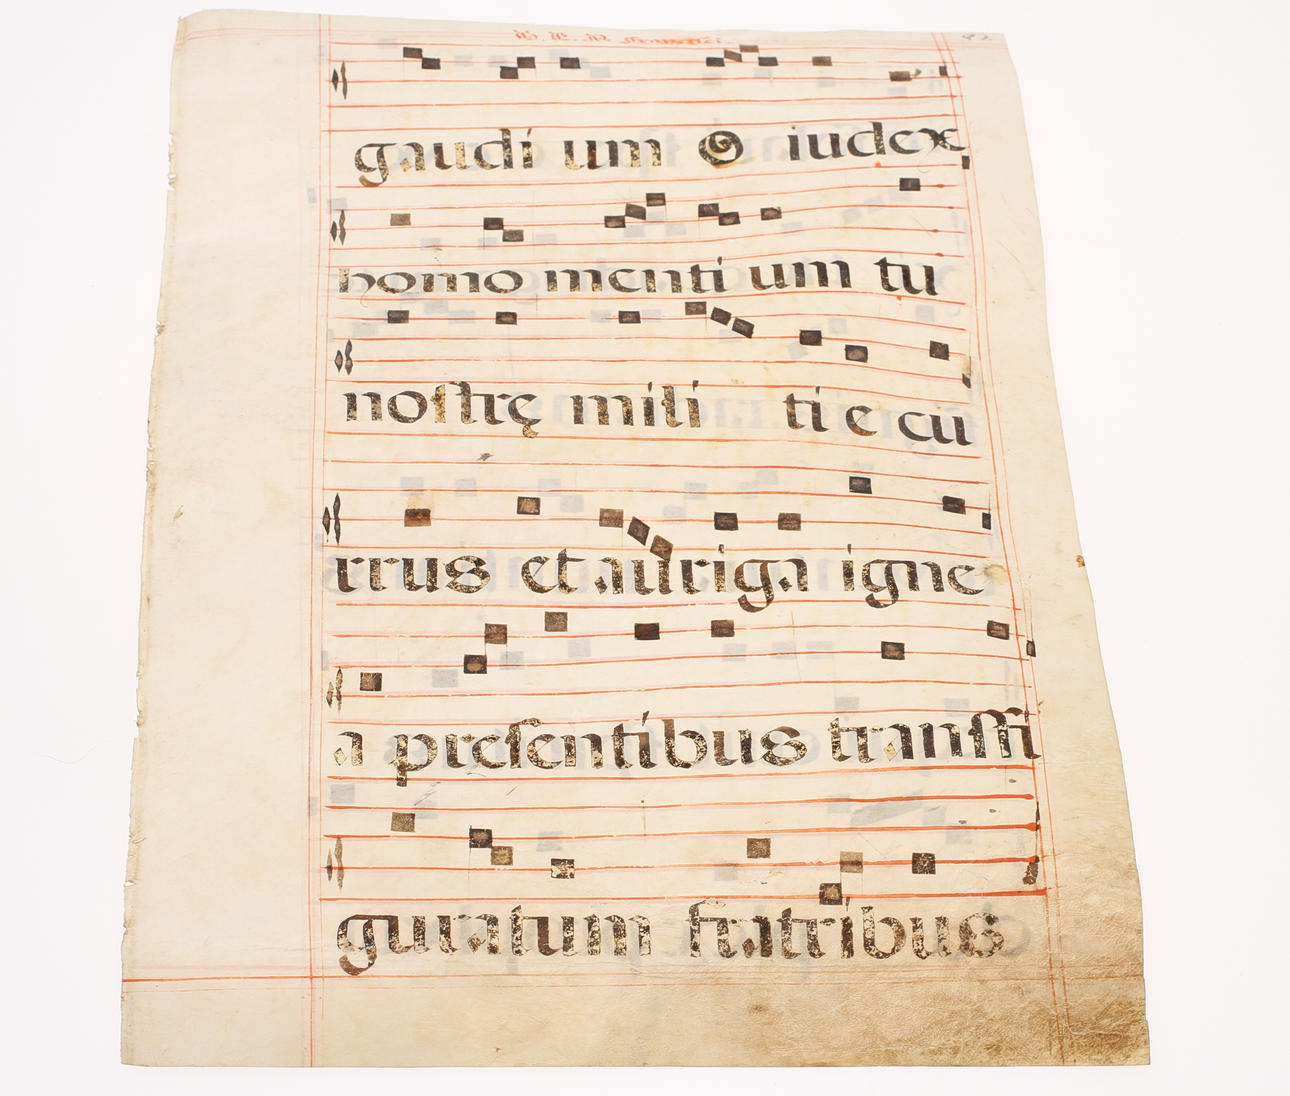 gaudi um O iudex
homo menti um tu
nostrę mili ti e cu
rrus et auriga igne
a presentibus transfi
guratum fratribus